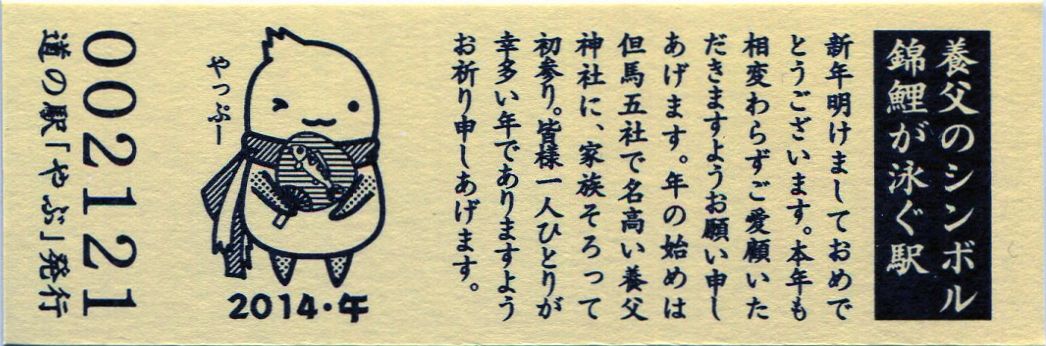 養父のシンボル
錦鯉が泳ぐ駅
新年明けましておめで
とうございます。本年も
相変わらずご愛顧いた
だきますようお願い申し
あげます。年の始めは
但馬五社で名高い養父
神社に、家族そろって
初参り。皆様一人ひとりが
幸多い年でありますよう
お祈り申しあげます。
やっぷー
2014・午
002121
道の駅「やぶ」発行